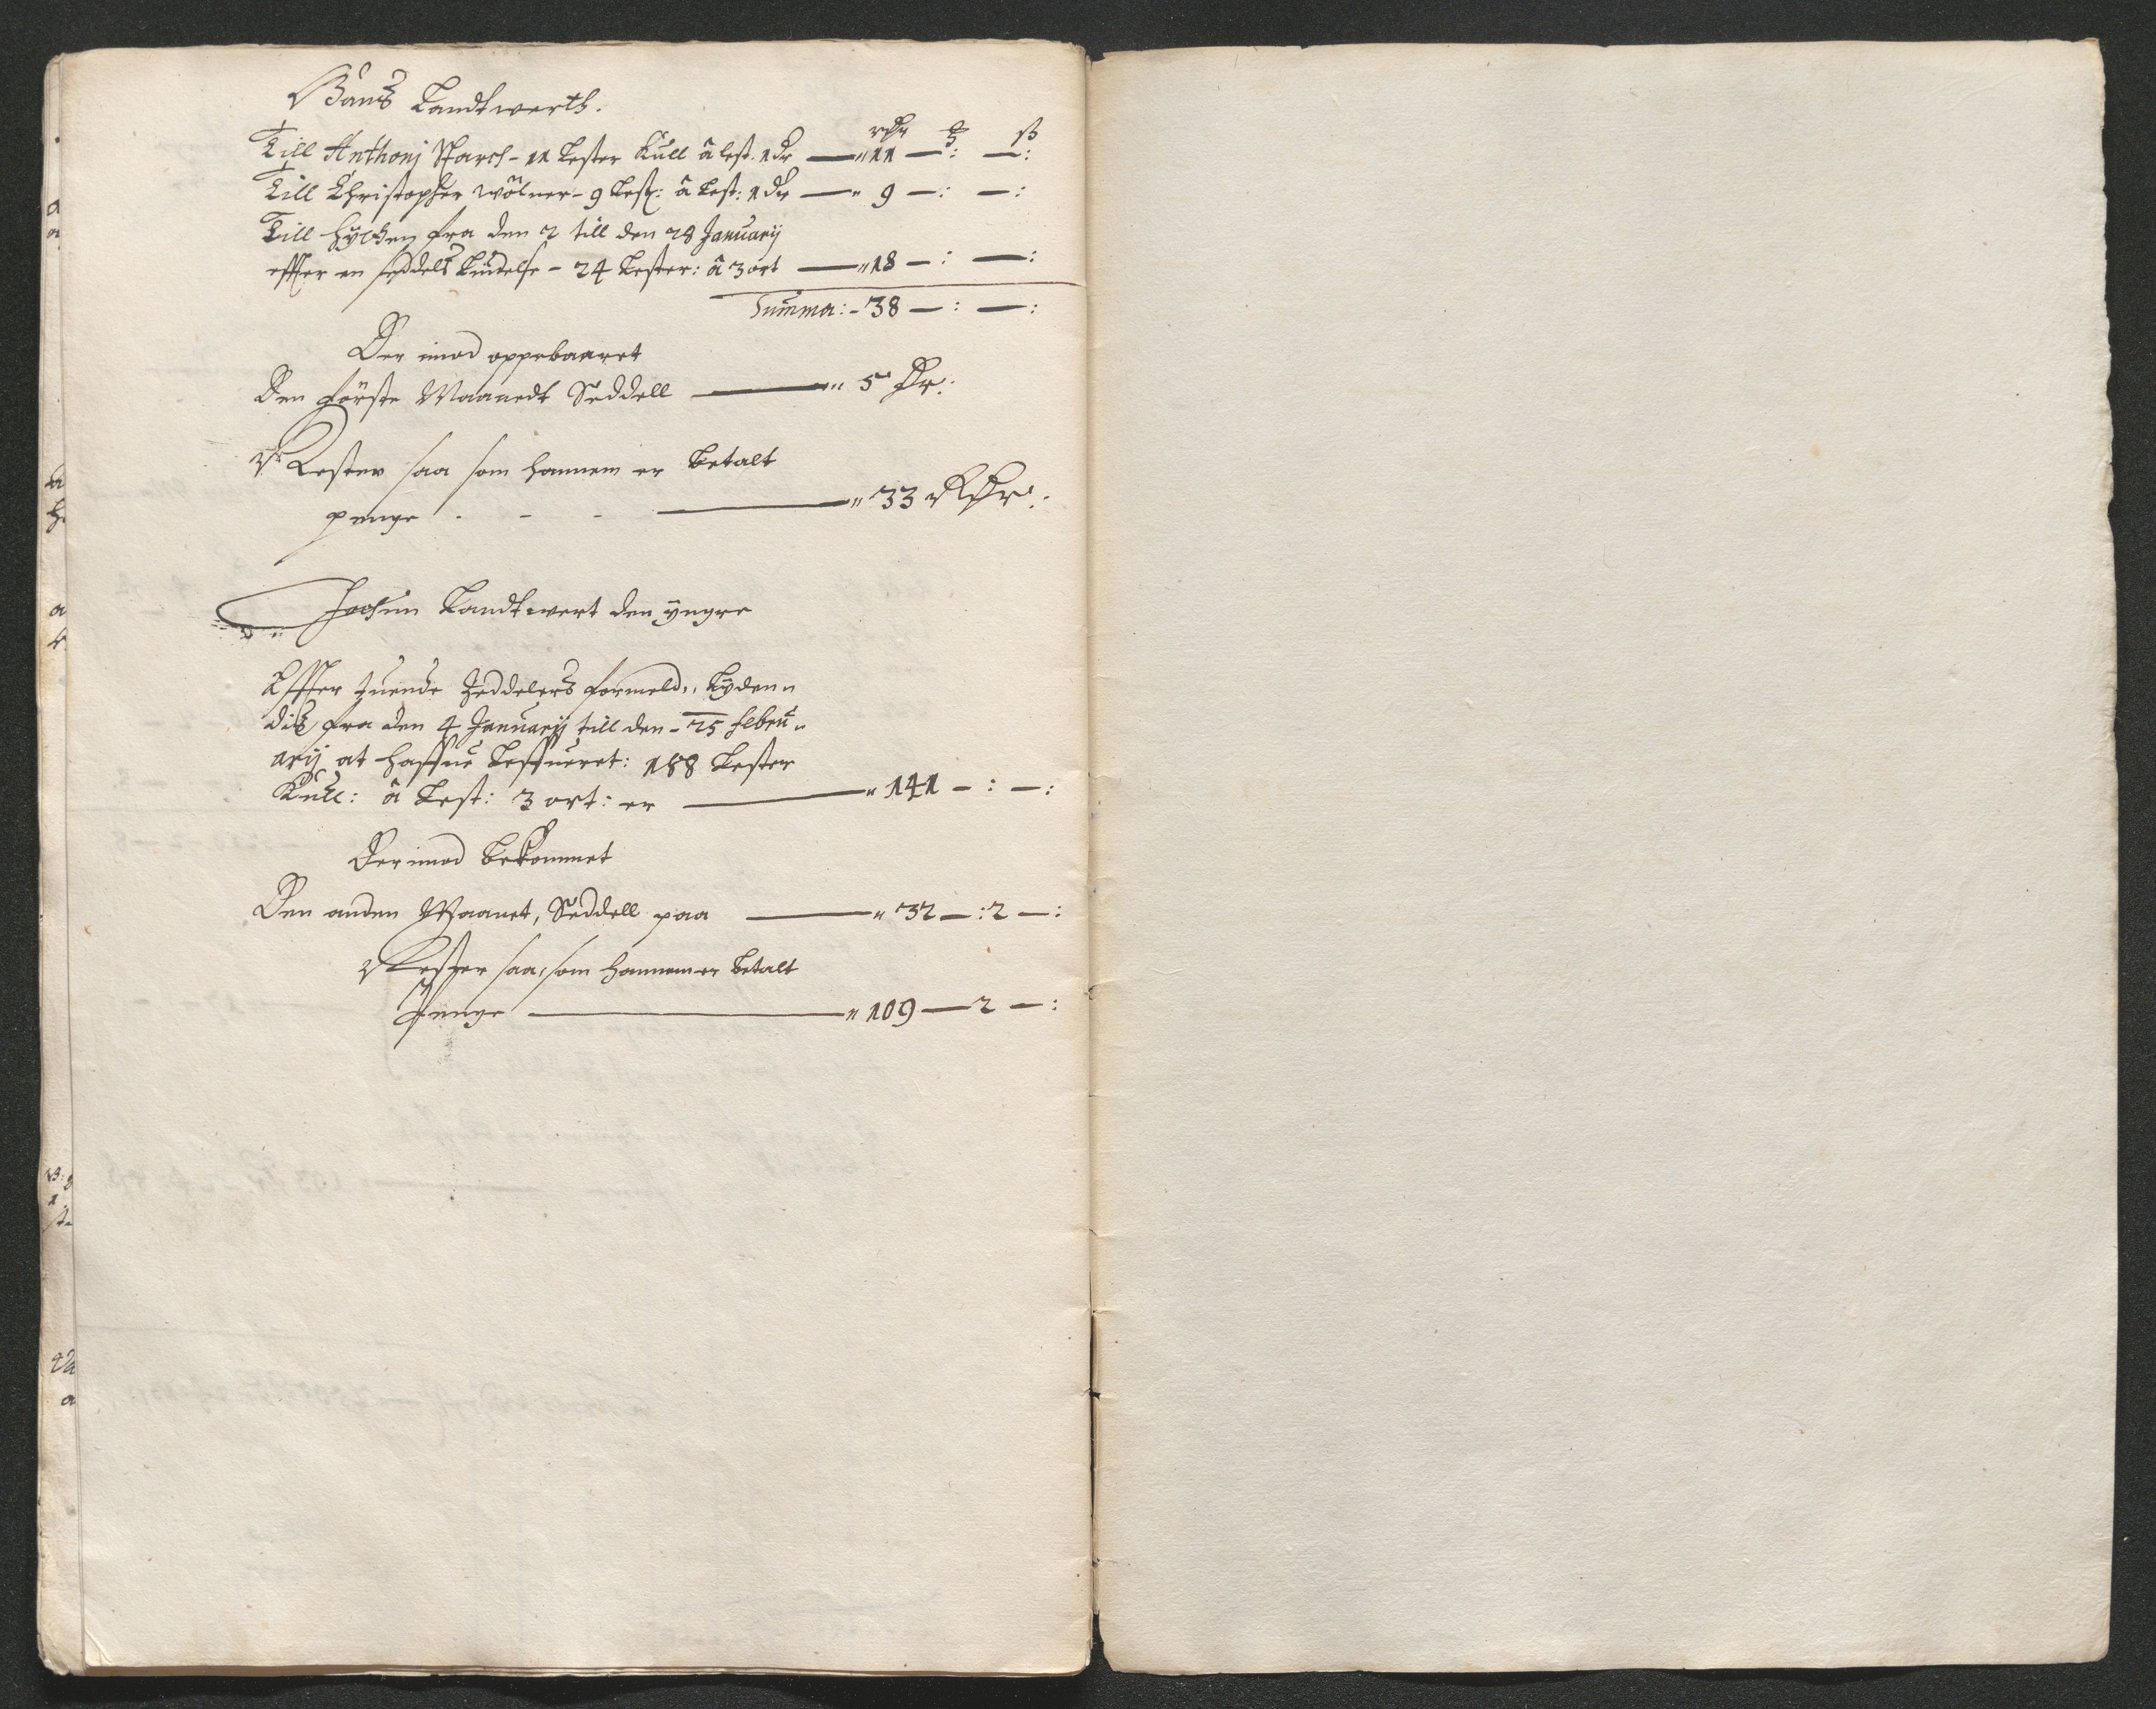 Hans Landtwerth.
rdr ort ß
Till Anthonj Starch - 11 Lester Kull â lest. 1 dr — 11 —: —:
Till Christopher Wölner - 9 Lest: â Lest: 1 dr — 9 —: —:
Till Hytthen fra den 2 till den 28 Januarij
effter en seddels liudelse - 24 Lester: â 3 ort — 18 —: —:
Summa: - 38 —: —:
Der imod oppebaaret
Den förste Maanedt Seddell — 5 dr:
Rester saa som hannem er betalt
penge - - - — 33 Rdr:
Jochim Landtwert den yngre
Effter tuende Zeddelers formeld,, lyden„
dis fra den 4 Januarij till den - 25 Febru„
arij at haffue leffueret: 188 Lester
Kull: â Lest: 3 ort: er — 141 —: —:
Der imod bekommet
Den anden Maanet, Seddell paa — 32 —: 2 —:
Rester saa, som hannem er betalt
Penge — 109 — 2 —: